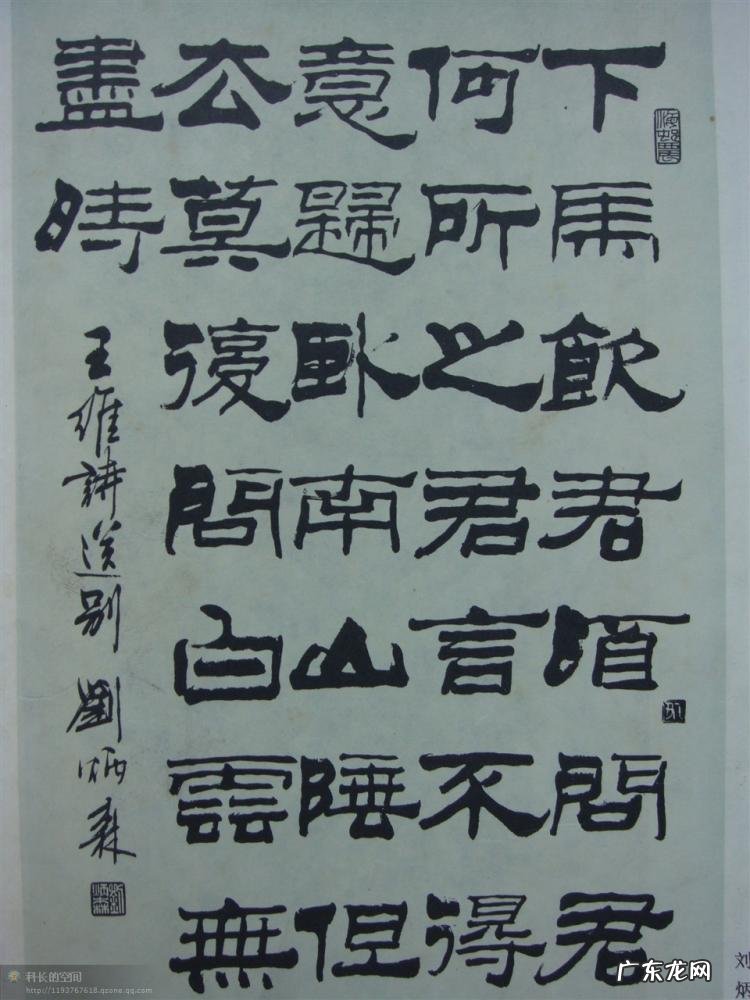 下馬飲君酒問君
何所之君言不得
意歸卧南山陲但
去莫復問白雲無
盡時
王維詩送别 劉炳森
劉炳森
刘炳
科长的空间
http://1193767618.qzone.qq.com
广东龙网